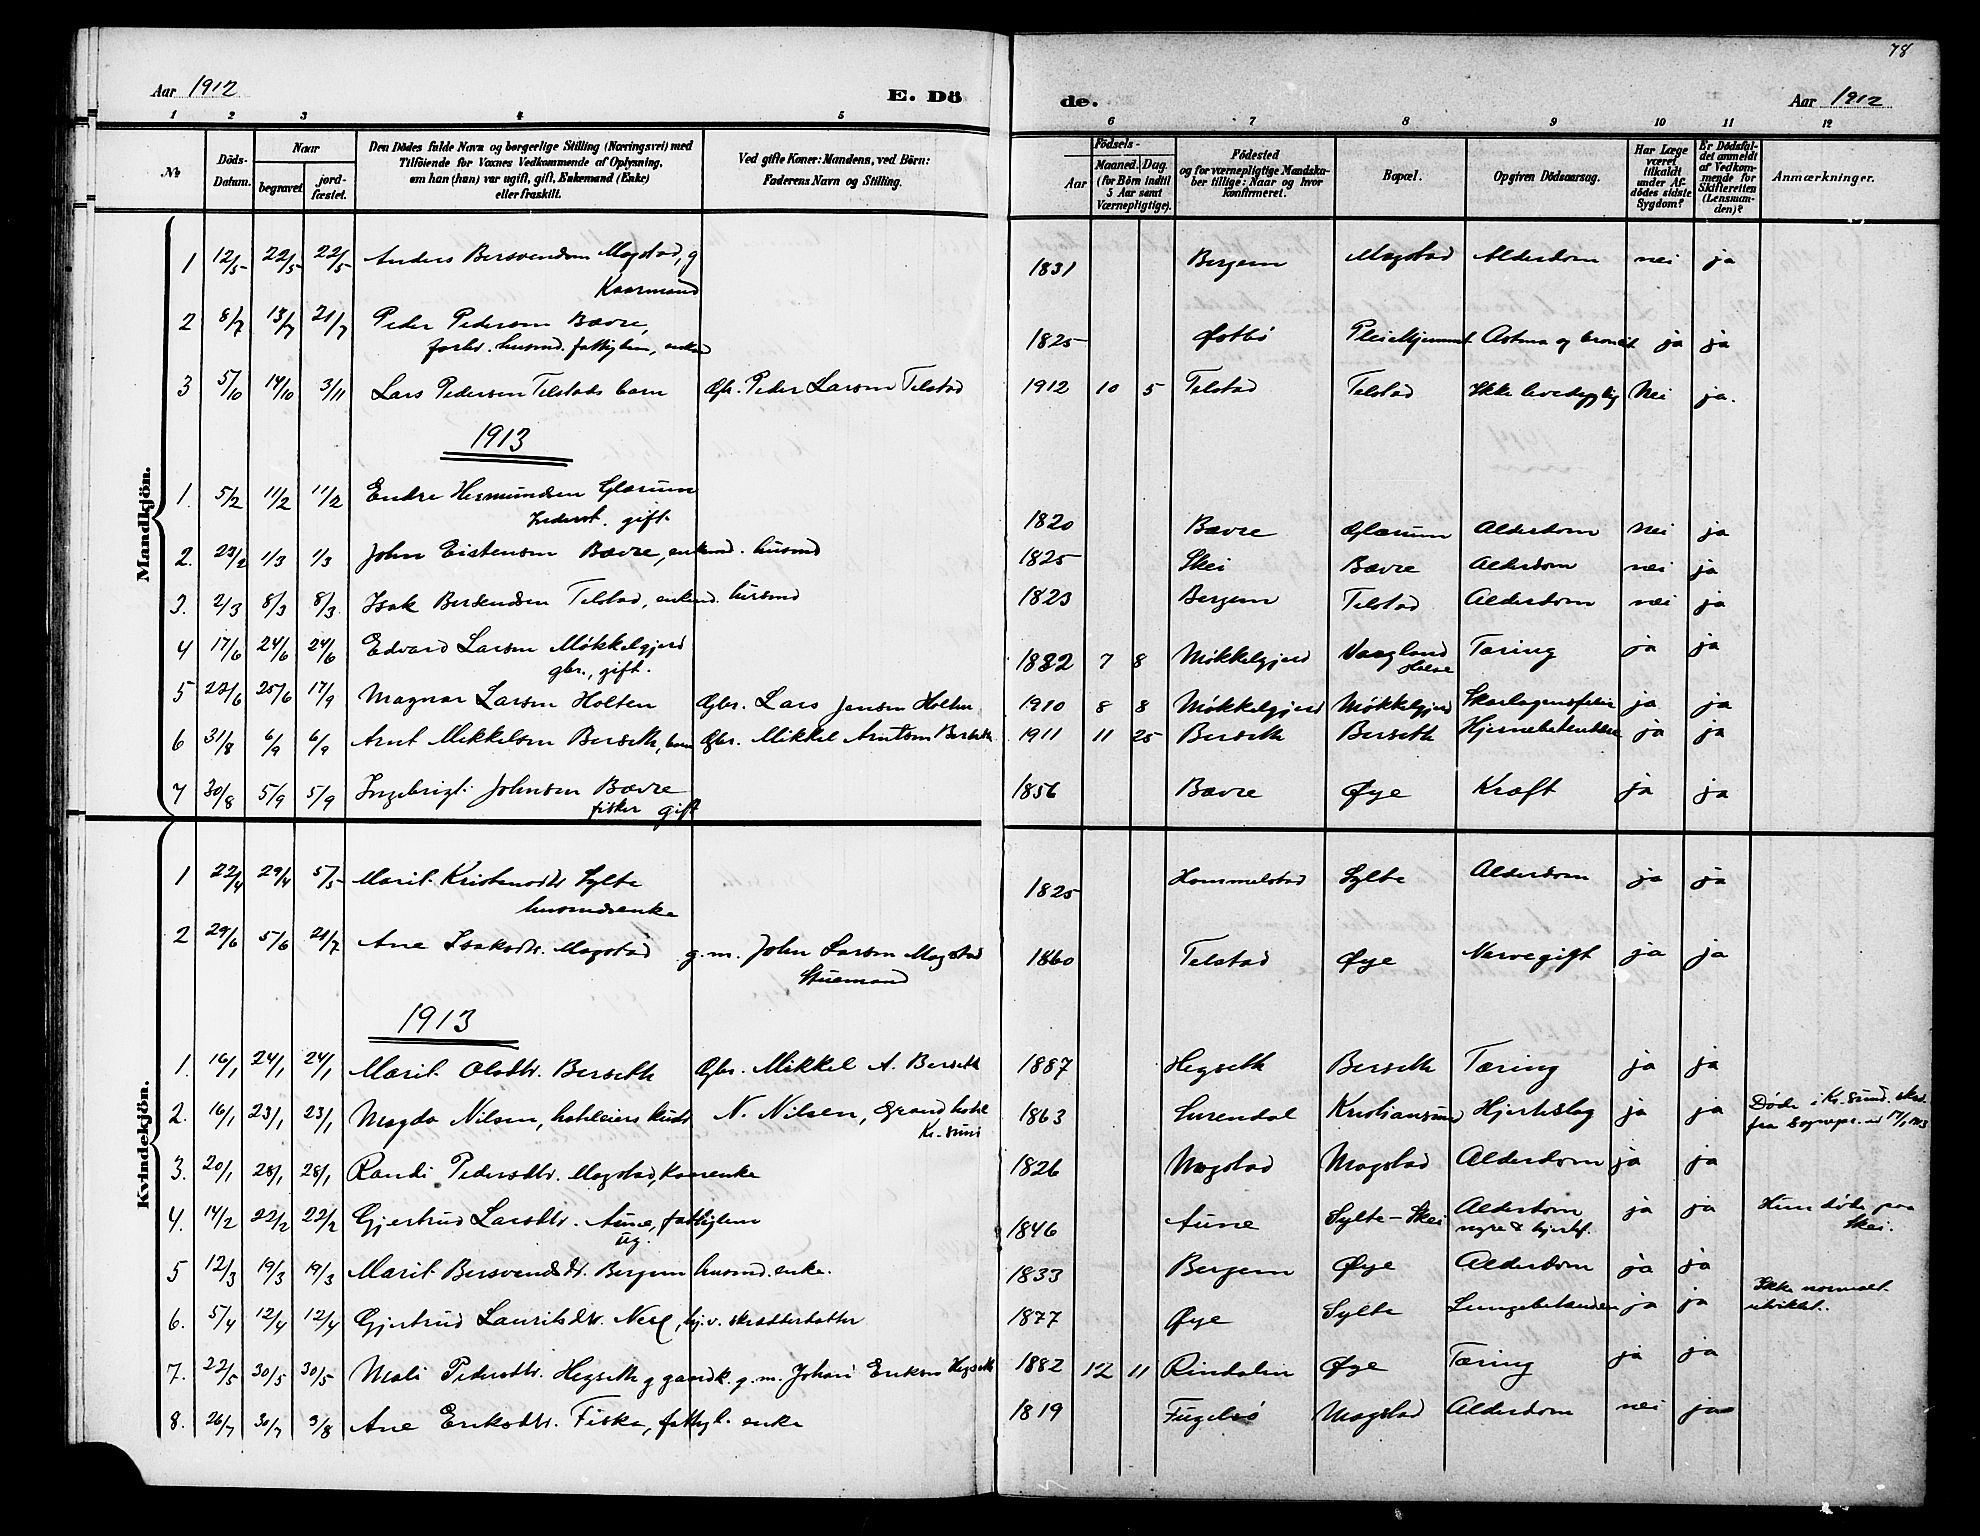 78
Aar 1912
E. Dö
de.
Aar 1912
1 2 3 4 5
6 7 8 9 10 11 12
No
Döds-Datum.
Naar
begravet.
jordfæstet.
Den Dödes fulde Navn og borgerlige Stilling (Næringsvei) med
Tilföiende for Voxnes Vedkommende af Oplysning,
om han (hun) var ugift, gift, Enkemand (Enke)
eller fraskilt.
Ved gifte Koner: Mandens, ved Börn:
Faderens Navn og Stilling.
Födsels-
Aar
Maaned. Dag.
(for Börn indtil
5 Aar samt
Værnepligtige).
Födested
og for værnepligtige Mandskaber tillige: Naar og hvor
konfirmeret.
Bopæl.
Opgiven Dödsaarsag.
Har Læge
været
tilkaldt
under Afdödes sidste
Sygdom?
Er Dödsfaldet anmeldt
af Vedkommende for
Skifteretten
(Lensmanden)?
Anmærkninger.
Mandkjön.
1 12/5 22/5 22/5 Anders Bersvendsen Mogstad, g 1831 Bergem Mogstad Alderdom nei ja
Kaarmand
2 8/7 13/7 21/7 Peder Pedersen Bævre, 1825 Pleiehjemmet Astma og bronkit ja ja
forhv. husmd. fattiglem, enkem
3 5/10 14/10 3/11 Lars Pedersen Telstads barn Gbr. Peder Larsen Telstad 1912 10 5 Telstad Telstad Ikke levedygtig Nei ja.
1913
1. 5/2 11/2 11/2 Endre Hermundsen Glærum 1820 Bævre Glærum Alderdom nei ja
gift.
2. 23/2 1/3 1/3 John Eistensen Bævre, enkemd. husmd 1825 Skei Bævre Alderdom nei ja
3. 2/3 8/3 8/3 Isak Bersendsen Telstad, enkemd. husmd 1823 Bergem Telstad Alderdom nei ja
4 17/6 24/6 24/6 Edvard Larsen Møkkelgjerd 1882 7 8 Møkkelgjerd Vaagland Halse Tæring ja ja
gbr., gift.
5 22/6 25/6 17/9 Magnar Larsen Holten Gbr. Lars Jensen Holten 1910 8 8 Møkkelgjerd Møkkelgjerd Skarlagensfeber ja ja
6 31/8 6/9 6/9 Arnt Mikkelsen Berseth, barn Gbr. Mikkel Arntsen Berseth 1911 11 25 Berseth Berseth Hjernebetændelse ja ja
7 30/8 5/9 5/9 Ingebrigt Johnsen Bævre 1856 Bævre Øye Kræft ja ja
fisker gift
Kvindekjön.
1 22/4 29/4 5/5 Marit Kristensdtr Sylte 1825 Hommelstad Sylte Alderdom ja ja
husmdsenke
2 29/6 5/6 21/7 Ane Isaksdtr. Mogstad g. m. John Larsen Mogstad 1860 Telstad Øye Nervegift ja ja
Stuemand
1913
1. 16/1 24/1 24/1 Marit Olsdtr. Berseth Gbr. Mikkel A. Berseth 1887 Hegseth Berseth Tæring ja ja
2. 16/1 23/1 23/1 Magda Nilsen, hoteleiers hustr N. Nilsen, Grand hotel 1863 Surendal Kristiansund Hjerteslag ja ja Døde i Kr.sund.
Kr.sund
fra Sognepr. 17/1 1913
3. 20/1 28/1 28/1 Randi Pedersdtr. Mogstad, Kaarenke 1826 Mogstad Mogstad Alderdom ja ja
4. 14/2 22/2 22/2 Gjertrud Larsdtr. Aune, fattiglem 1846 Aune Sylte-Skei Alderdom ja ja Hun døde paa
ug. nyre & hjertef. Skei.
5 12/3 19/3 19/3 Marit Bersvendsdtr. Bergem husmd. enke. 1833 Bergem Øye Alderdom ja ja
6. 5/4 12/4 12/4 Gjertrud Lauritsdtr. Nese, hj.v. skrædderdatter 1877 Øye Sylte Lungebetænden ja ja Ikke normalt
utviklet.
7. 22/5 30/5 30/5 Mali Pedersdtr. Hegseth g gaardk. g. m. Johan Eriksen Hegseth 1882 12 11 Rindalen Øye Tæring ja ja
8. 26/7 30/7 3/8 Ane Eriksdtr. Fiska, fattigl. enke 1819 Fugelsø Mogstad Alderdom nei ja